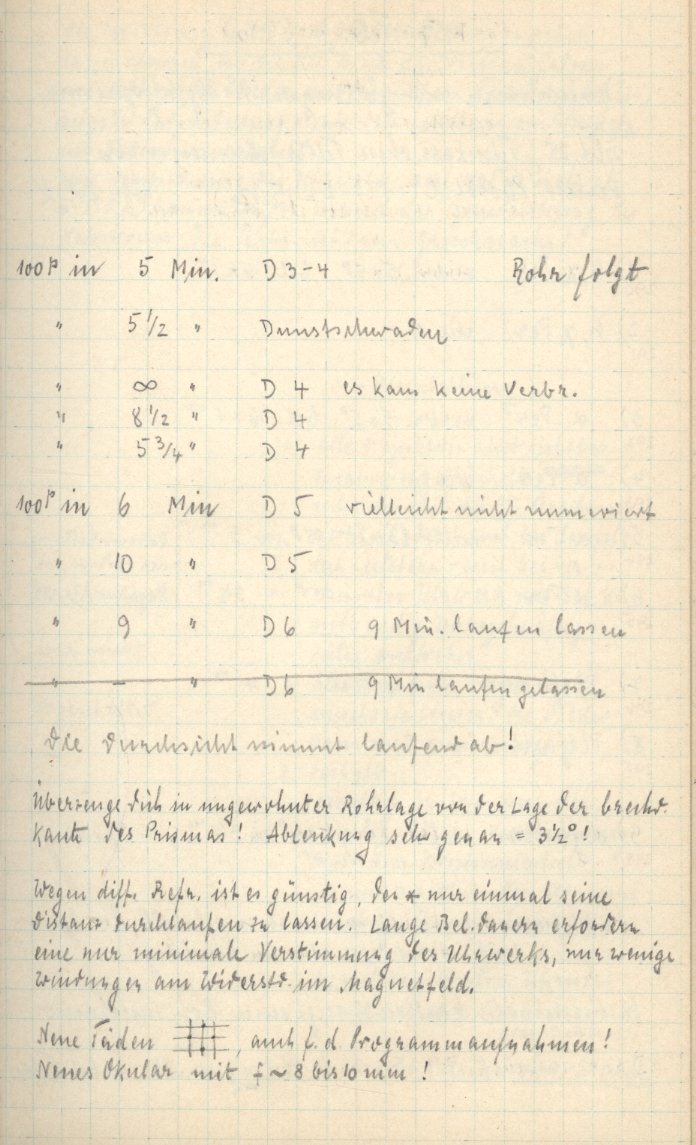 100P in 5 Min. D 3-4 Rohr folgt
" 5 1/2 " Dunstschwaden
" ∞ " D 4 es kam keine Verbr.
" 8 1/2 " D 4
" 5 3/4 " D 4
100P in 6 Min D 5 vielleicht nicht numeriert
" 10 " D 5
" 9 " D 6 9 Min. laufen lassen
" – " D 6 9 Min laufen gelassen
Die Durchsicht nimmt laufend ab!
Überzeuge dich in ungewohnter Rohrlage von der Lage der brechd.
Kante des Prismas! Ablenkung sehr genau = 3 1/2°!
Wegen diff. Refr. ist es günstig, den * nur einmal seine
Distanz durchlaufen zu lassen. Lange Bel.dauern erfordern
eine nur minimale Verstimmung des Uhrwerks, nur wenige
Windungen am Widerstd. im Magnetfeld.
Neue Fäden , auch f. d. Programmaufnahmen!
Neues Okular mit f ~ 8 bis 10 mm!